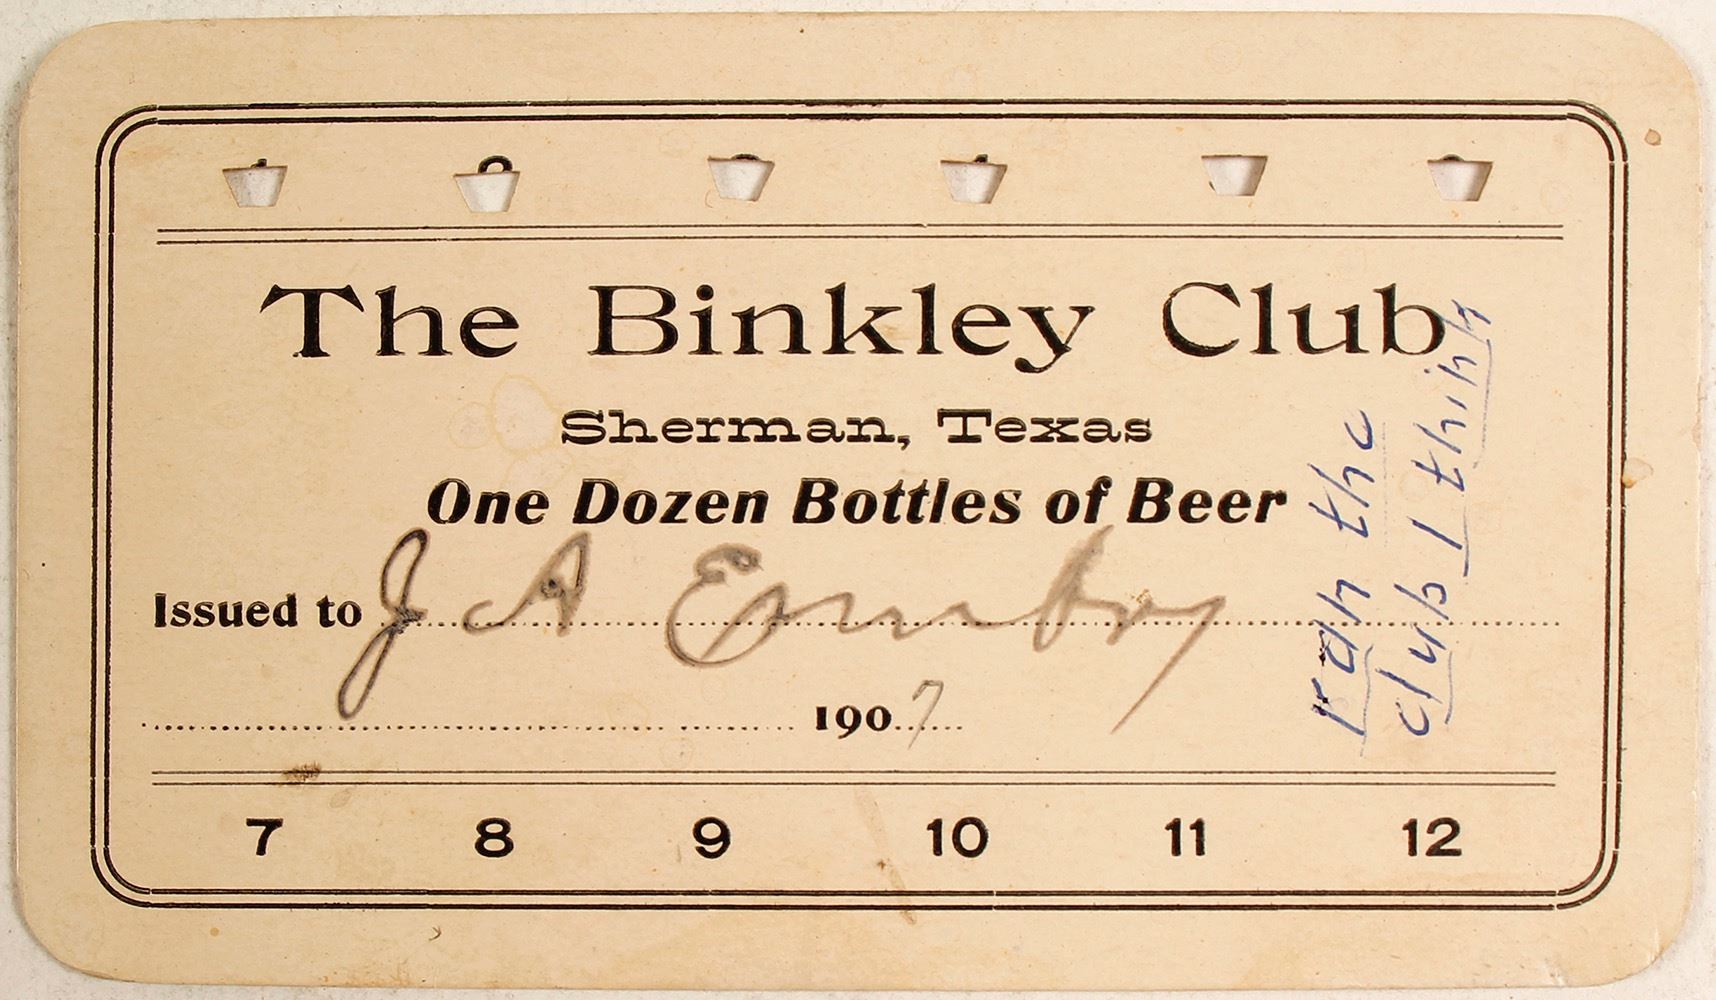 The Binkley Club
Sherman, Texas
One Dozen Bottles of Beer
Issued to J A Embry
1907
7 8 9 10 11 12
ran the
club I think